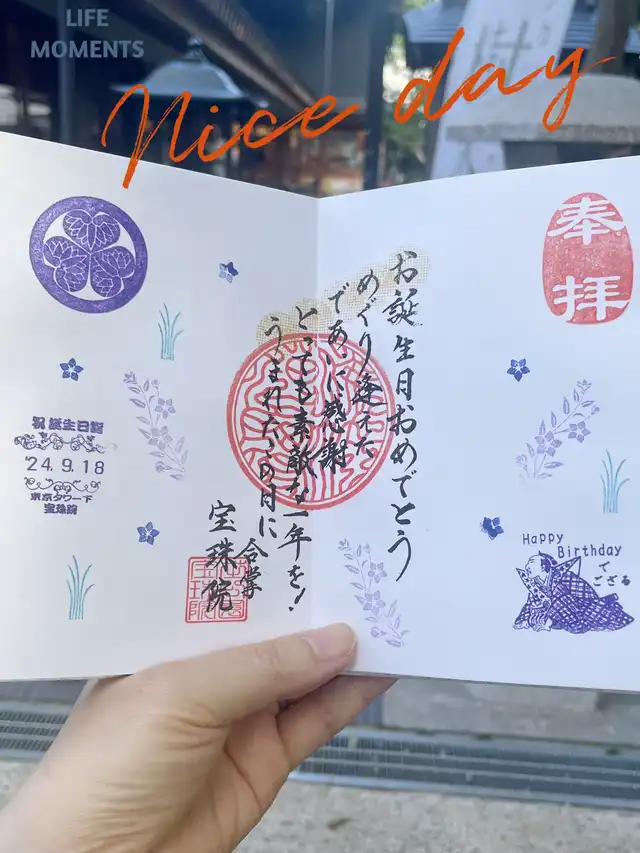 LIFE
MOMENTS
Nice day
奉拝
お誕生日おめでとう
めぐり逢えた
であいに感謝
とっても素敵な一年を!
うまれたこの日に
合掌
宝珠院
Happy
Birthday
で
ござる
祝誕生日詣
'24.9.18
東京タワー下
宝珠院